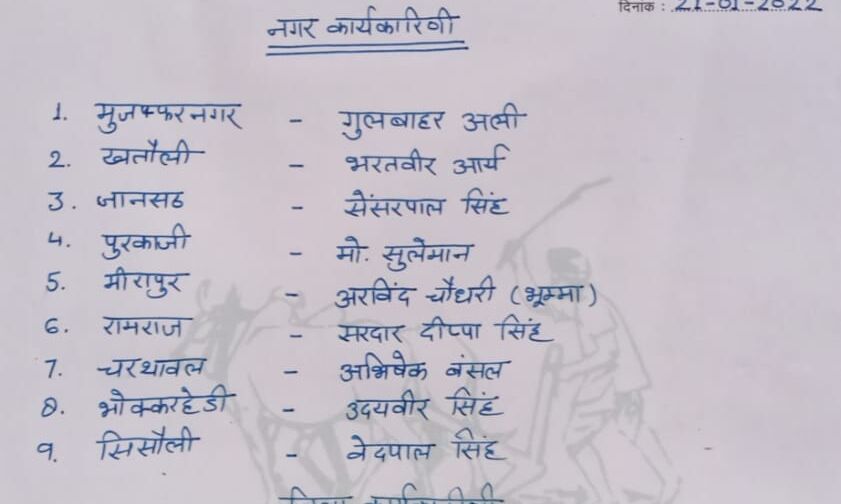 दिनांक : 21-01-2022
नगर कार्यकारिणी
1. मुजफ्फरनगर - गुलबाहर अली
2. खतौली - भरतवीर आर्य
3. जानसठ - सेंसरपाल सिंह
4. पुरकाजी - मो. सुलेमान
5. मीरापुर - अरविंद चौधरी (भूम्मा)
6. रामराज - सरदार दीप्पा सिंह
7. चरथावल - अभिषेक बंसल
8. भोक्करहेडी - उदयवीर सिंह
9. सिसौली - वेदपाल सिंह